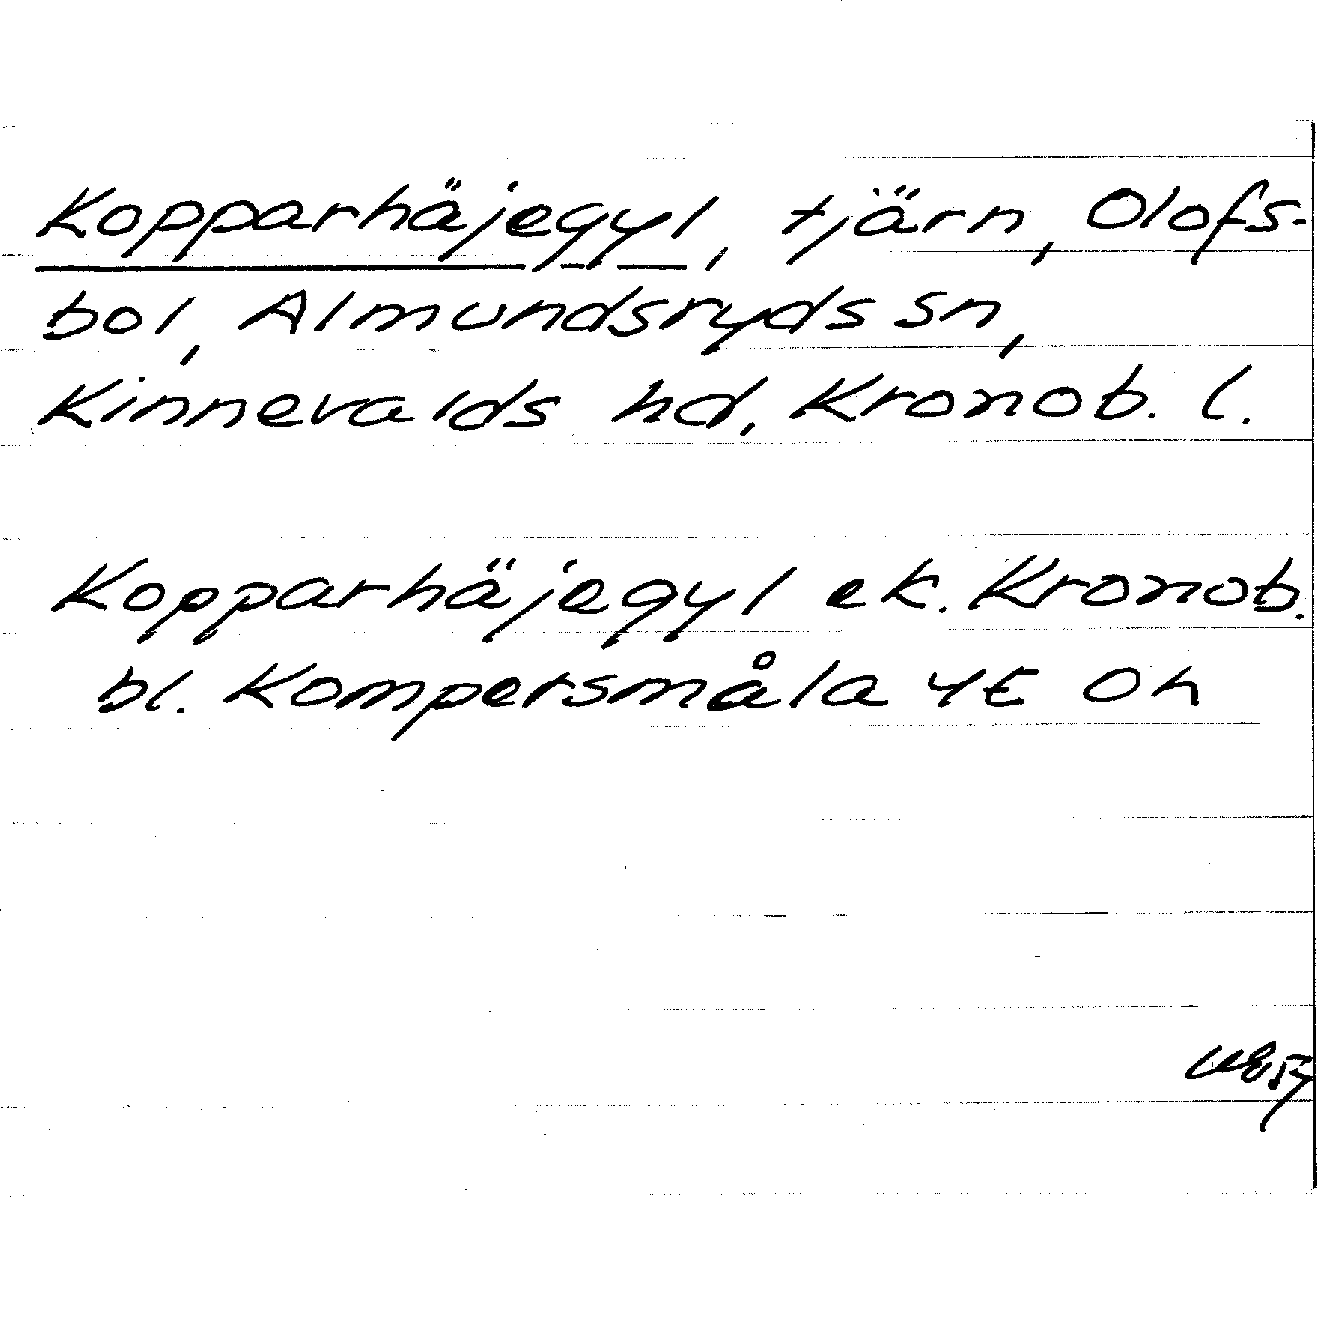 Kopparhäjegyl, tjärn, Olofs-
bol, Almundsryds sn,
Kinnevalds hd, Kronob. l.
Kopparhäjegyl ek. Kronob.
bl. Kompersmåla 4E 0h